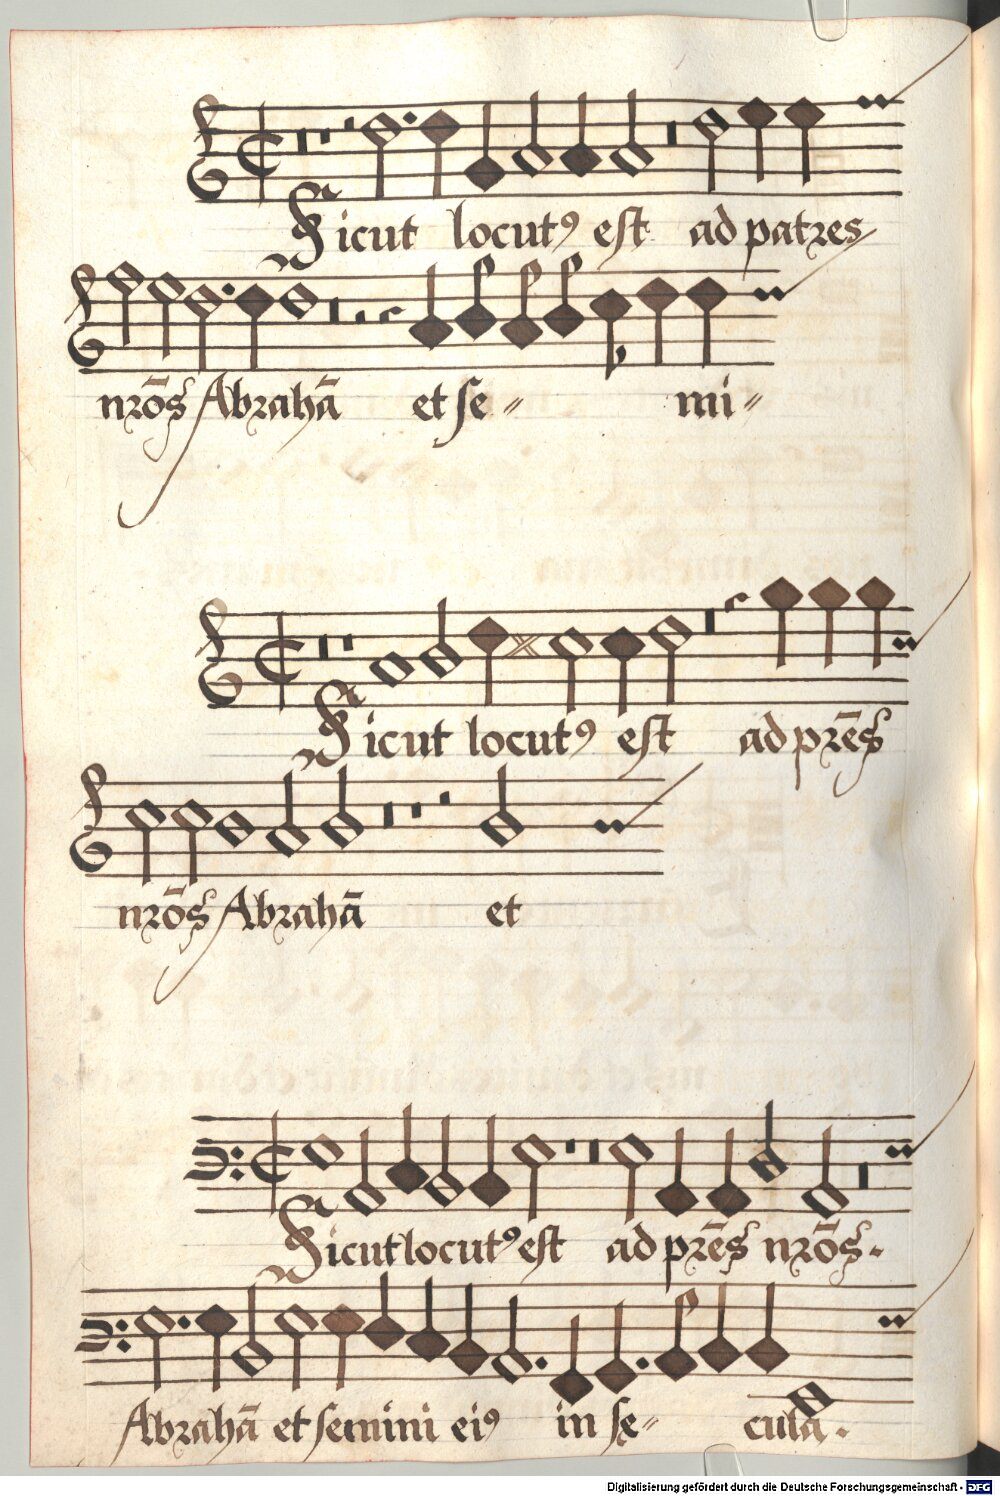 Sicut locutꝰ est ad patres
nrōs Abrahā et se〃 mi〃
Sicut locutꝰ est ad prēs
nrōs Abrahā et
Sicut locutꝰ est ad prēs nrōs.
Abrahā et semini eiꝰ in se〃 cula.
Digitalisierung gefördert durch die Deutsche Forschungsgemeinschaft - DFG